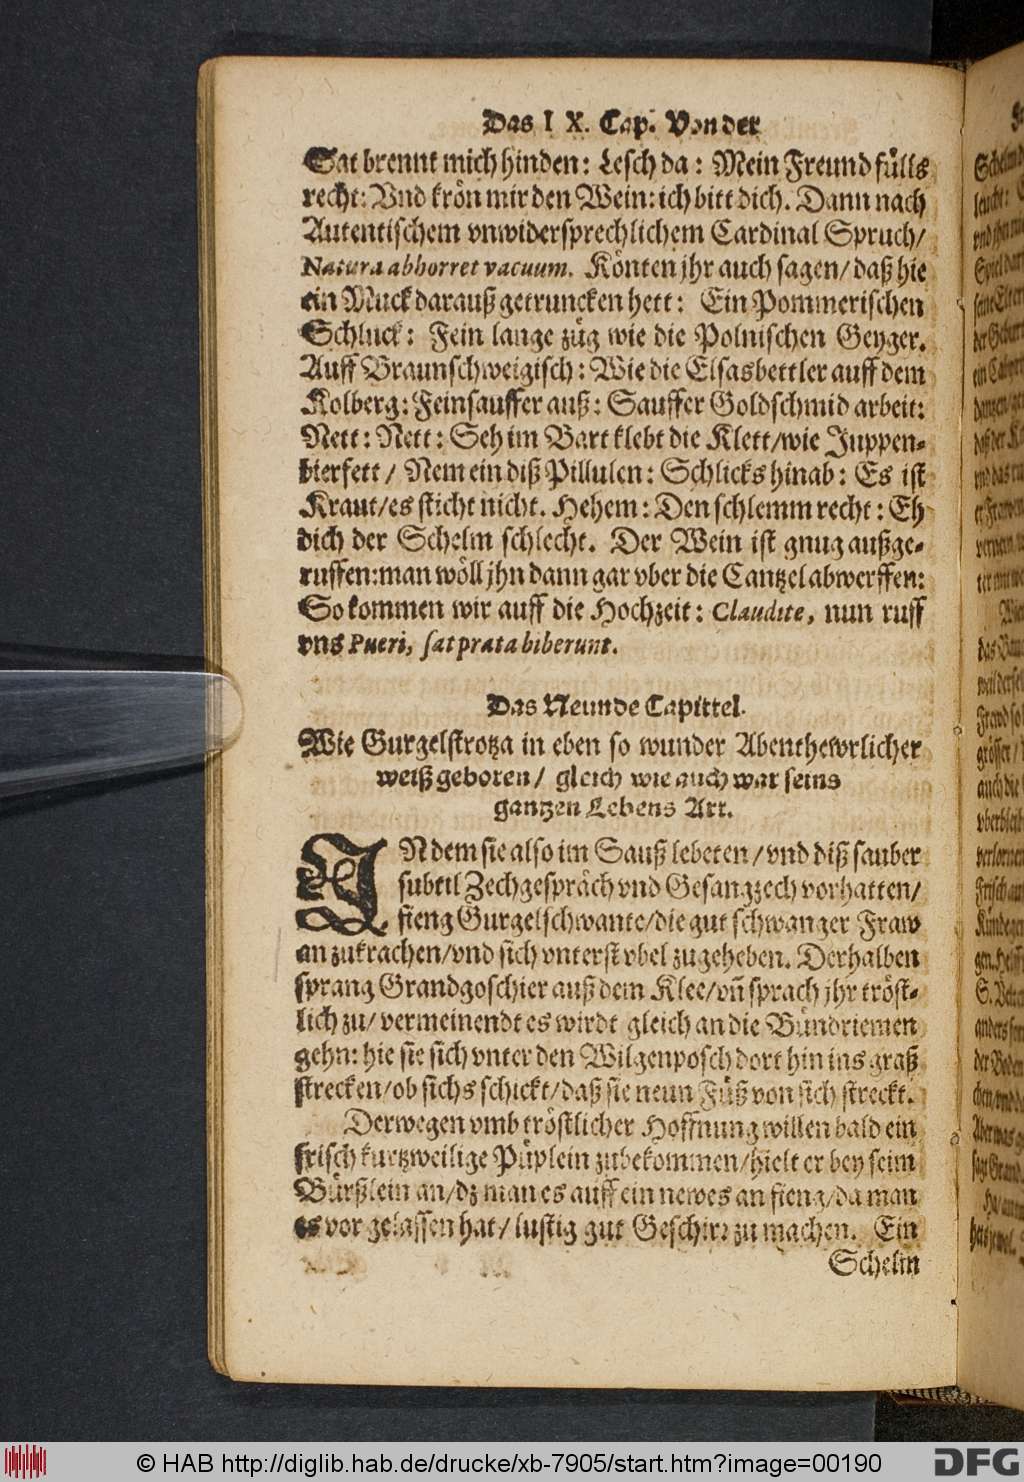 Das IX. Cap. Von der
Sat brennt mich hinden: Lesch da: Mein Freund fülls
recht: Vnd krön mir den Wein: ich bitt dich. Dann nach
Autentischem vnwidersprechlichem Cardinal Spruch/
Natura abhorret vacuum. Könten jhr auch sagen/ daß hie
ein Muck darauß getruncken hett: Ein Pommerischen
Schluck: Fein lange züg wie die Polnischen Geyger.
Auff Braunschweigisch: Wie die Elsasbettler auff dem
Kolberg: Fein sauffer auß: Sauffer Goldschmid arbeit:
Nett: Nett: Seh im Bart klebt die Klett/ wie Juppen-
bierfett/ Nem ein diß Pillulen: Schlicks hinab: Es ist
Kraut/ es sticht nicht. Hehem: Den schlemm recht: Eh
dich der Schelm schlecht. Der Wein ist gnug außge-
ruffen: man wöll jhn dann gar vber die Cantzel abwerffen:
So kommen wir auff die Hochzeit: Claudite, nun ruff
vns Pueri, sat prata biberunt.
Das Neunde Capittel.
Wie Gurgelstrotza in eben so wunder Abenthewrlicher
weiß geboren/ gleich wie auch war seins
gantzen Lebens Art.
INdem sie also im Sauß lebeten/ vnd diß sauber
subtil Zechgespräch vnd Gesangzech vorhatten/
fieng Gurgelschwante/ die gut schwanger Fraw
an zukrachen/ vnd sich vnterst vbel zugeheben. Derhalben
sprang Grandgoschier auß dem Klee/ vñ sprach jhr tröst-
lich zu/ vermeinendt es wirdt gleich an die Bündriemen
gehn: hie sie sich vnter den Wilgenposch dort hin ins graß
strecken/ ob sichs schickt/ daß sie neun Füß von sich streckt.
Derwegen vmb tröstlicher Hoffnung willen bald ein
frisch kurtzweilige Püplein zubekommen/ hielt er bey seim
Bürßlein an/ dz man es auff ein newes an fieng/ da man
es vor gelassen hat/ lustig gut Geschirr zu machen. Ein
Schelm
© HAB http://diglib.hab.de/drucke/xb-7905/start.htm?image=00190
DFG